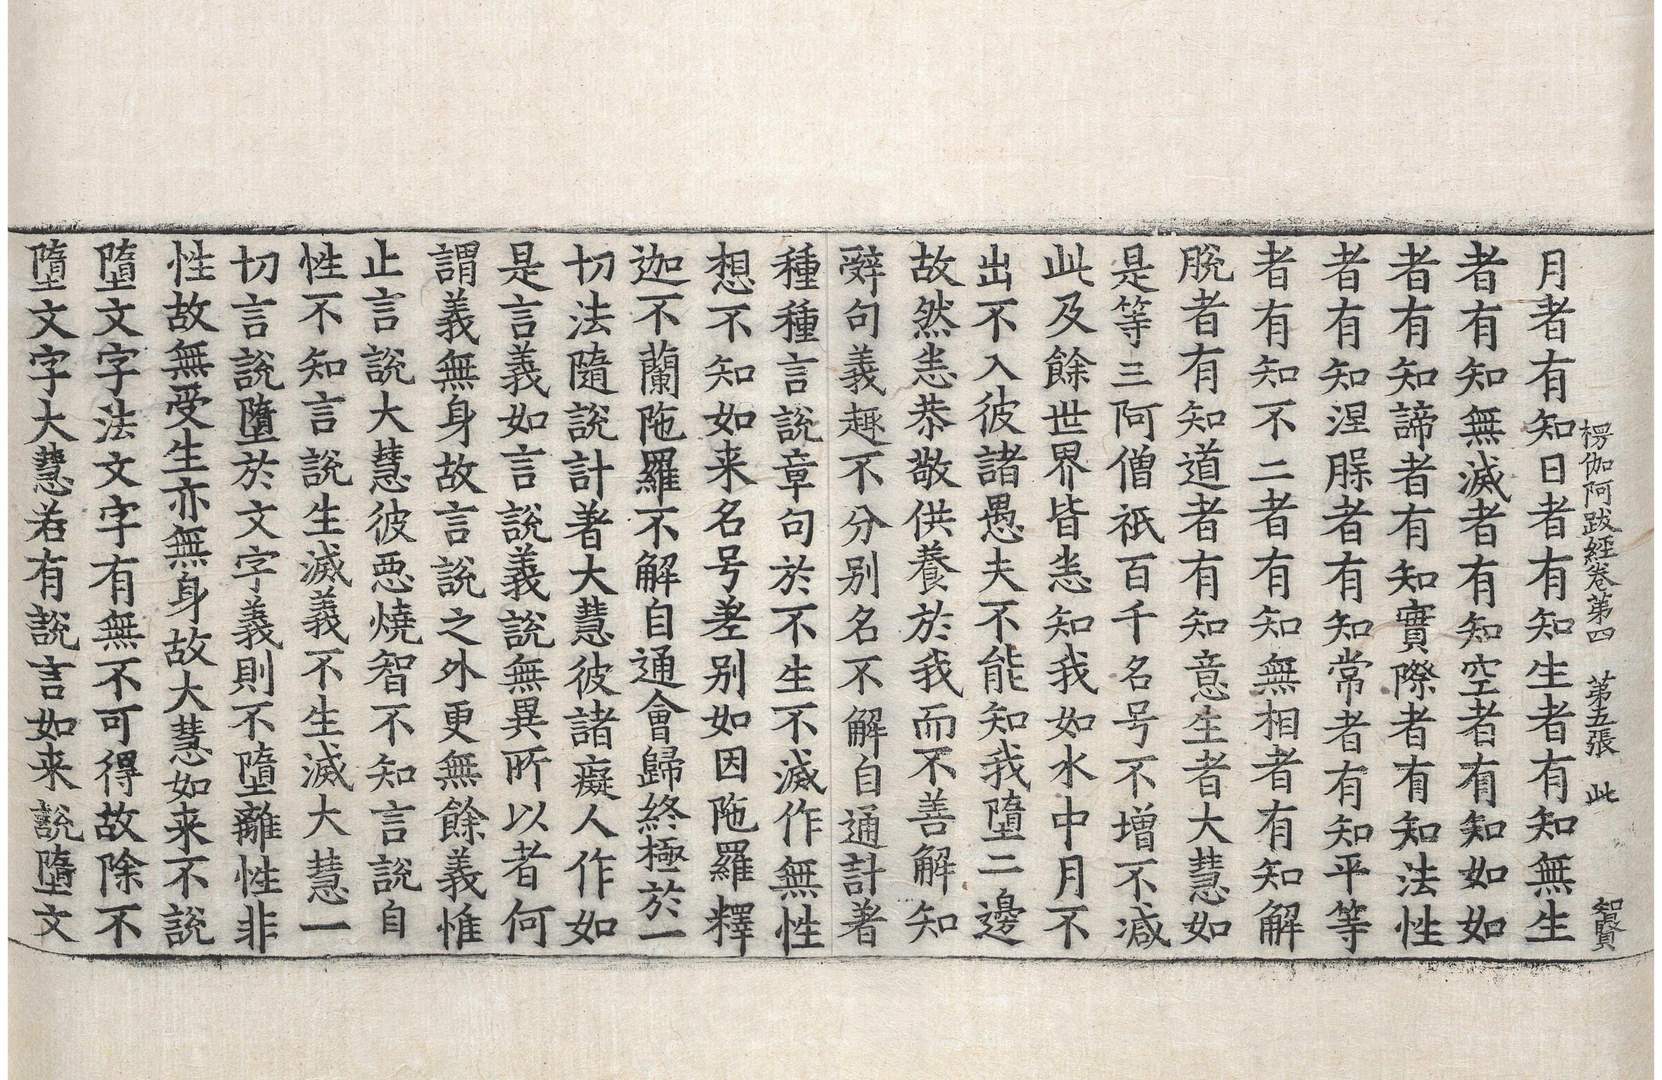 楞伽阿跋經卷第四　第五張　此　智賢
月者有知日者有知生者有知無生
者有知無滅者有知空者有知如如
者有知諦者有知實際者有知法性
者有知涅槃者有知常者有知平等
者有知不二者有知無相者有知解
脫者有知道者有知意生者大慧如
是等三阿僧祇百千名号不增不減
此及餘世界皆悉知我如水中月不
出不入彼諸愚夫不能知我墮二邊
故然悉恭敬供養於我而不善解知
辭句義趣不分别名不解自通計著
種種言說章句於不生不滅作無性
想不知如来名号差别如因陁羅釋
迦不蘭陁羅不解自通會歸終極於一
切法隨說計著大慧彼諸癡人作如
是言義如言說義說無異所以者何
謂義無身故言說之外更無餘義惟
止言說大慧彼惡燒智不知言說自
性不知言說生滅義不生滅大慧一
切言說墮於文字義則不墮離性非
性故無受生亦無身故大慧如来不說
墮文字法文字有無不可得故除不
墮文字大慧若有說言如来說墮文